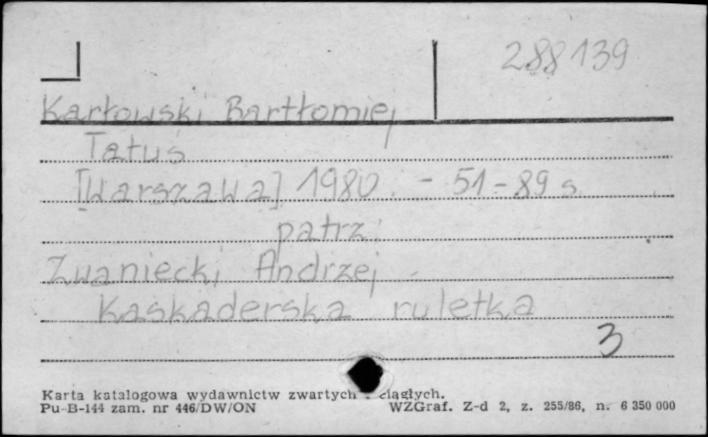 288139
Karłowski Bartłomiej
Tatuś
[Warszawa] 1980. - 51-89 s.
patrz:
Zwaniecki Andrzej
Kaskaderska ruletka
3
Karta katalogowa wydawnictw zwartych ciągłych.
Pu-B-144 zam. nr 446/DW/ON
WZGraf. Z-d 2, z. 255/86, n. 6 350 000